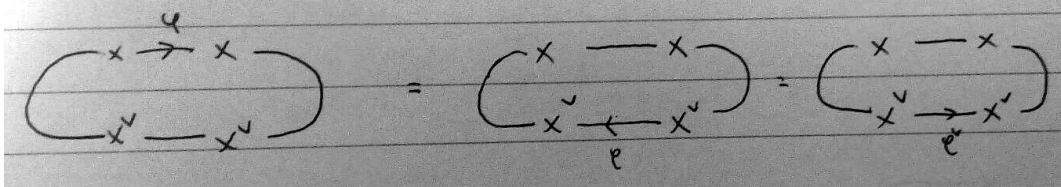 φ
X → X = X — X = X — X
X^∨ — X^∨ X^∨ ← X^∨ X^∨ → X^∨
φ φ^∨